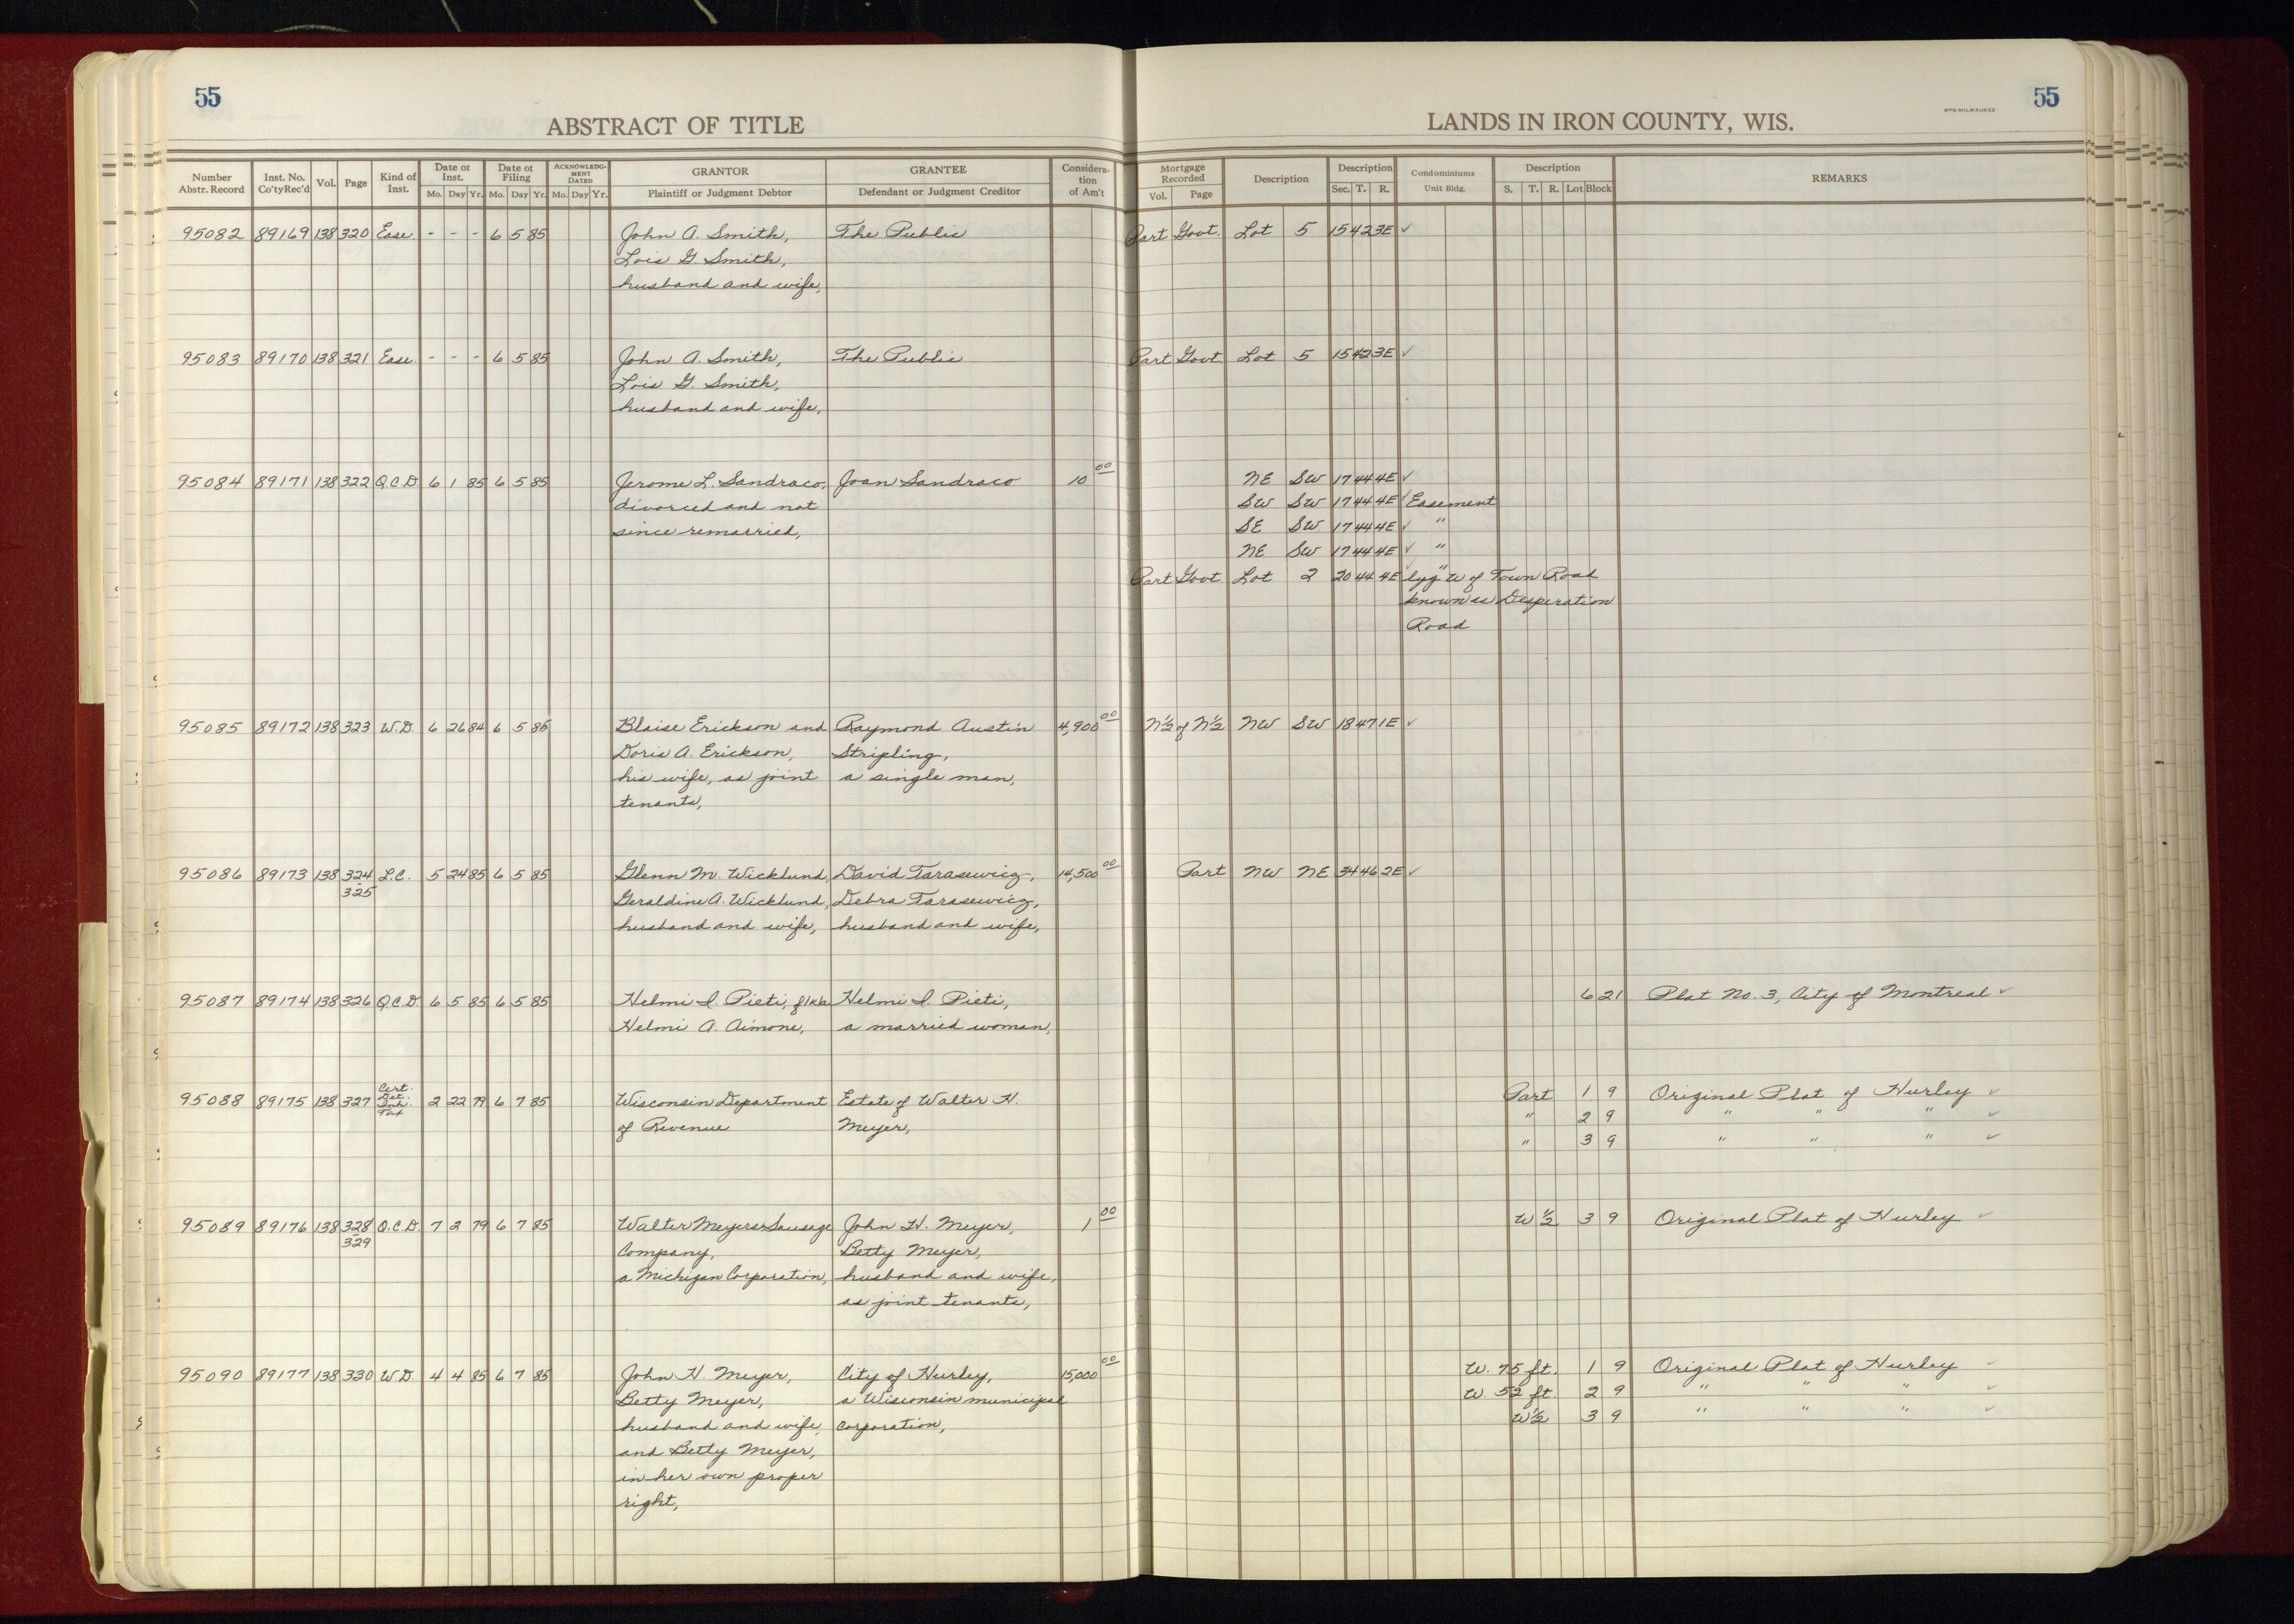 55
ABSTRACT OF TITLE
LANDS IN IRON COUNTY, WIS.
WPB-MILWAUKEE
55
Number Abstr. Record Inst. No. Co'ty Rec'd Vol. Page Kind of Inst. Date of Inst. Mo. Day Yr. Date of Filing Mo. Day Yr. ACKNOWLEDGMENT DATED Mo. Day Yr. GRANTOR Plaintiff or Judgment Debtor GRANTEE Defendant or Judgment Creditor Consideration of Am't
Mortgage Recorded Vol. Page Description Description Sec. T. R. Condominiums Unit Bldg. Description S. T. R. Lot Block REMARKS
95082 89169 138 320 Ease. - - - 6 5 85 John A. Smith, The Public Part Govt. Lot 5 15 42 3E ✓
Lois G. Smith,
husband and wife,
95083 89170 138 321 Ease. - - - 6 5 85 John A. Smith, The Public Part Govt. Lot 5 15 42 3E ✓
Lois G. Smith,
husband and wife,
95084 89171 138 322 Q.C.D. 6 1 85 6 5 85 Jerome L. Sandraco, Joan Sandraco 10 00 NE SW 17 44 4E ✓
divorced and not SW SW 17 44 4E ✓ Easement
since remarried, SE SW 17 44 4E ✓ "
NE SW 17 44 4E ✓ "
Part Govt Lot 2 20 44 4E lyg W of Town Road
known as Desperation
Road
95085 89172 138 323 W.D. 6 26 84 6 5 85 Blaise Erickson and Raymond Austin 4,900 00 N½ of N½ NW SW 18 47 1E ✓
Doris A. Erickson, Stripling,
his wife, as joint a single man,
tenants,
95086 89173 138 324 L.C. 5 24 85 6 5 85 Glenn M. Wicklund, David Tarasewicz, 14,500 00 Part NW NE 34 46 2E ✓
325 Geraldine A. Wicklund, Debra Tarasewicz,
husband and wife, husband and wife,
95087 89174 138 326 Q.C.D. 6 5 85 6 5 85 Helmi I. Pieti, f/k/a Helmi I. Pieti, 6 21 Plat No. 3, City of Montreal ✓
Helmi A. Aimone, a married woman,
95088 89175 138 327 Cert. Det. Inh. Tax 2 22 79 6 7 85 Wisconsin Department Estate of Walter H. Part 1 9 Original Plat of Hurley ✓
of Revenue Meyer, " 2 9 " " " ✓
" 3 9 " " " ✓
95089 89176 138 328 Q.C.D 7 2 79 6 7 85 Walter Meyers Sausage John H. Meyer, 1 00 W ½ 3 9 Original Plat of Hurley ✓
329 Company, Betty Meyer,
a Michigan Corporation, husband and wife,
as joint tenants,
95090 89177 138 330 W.D. 4 4 85 6 7 85 John H. Meyer, City of Hurley, 15,000 00 W. 75 ft. 1 9 Original Plat of Hurley ✓
Betty Meyer, a Wisconsin municipal W. 52 ft. 2 9 " " " ✓
husband and wife, corporation, W½ 3 9 " " " ✓
and Betty Meyer,
in her own proper
right,